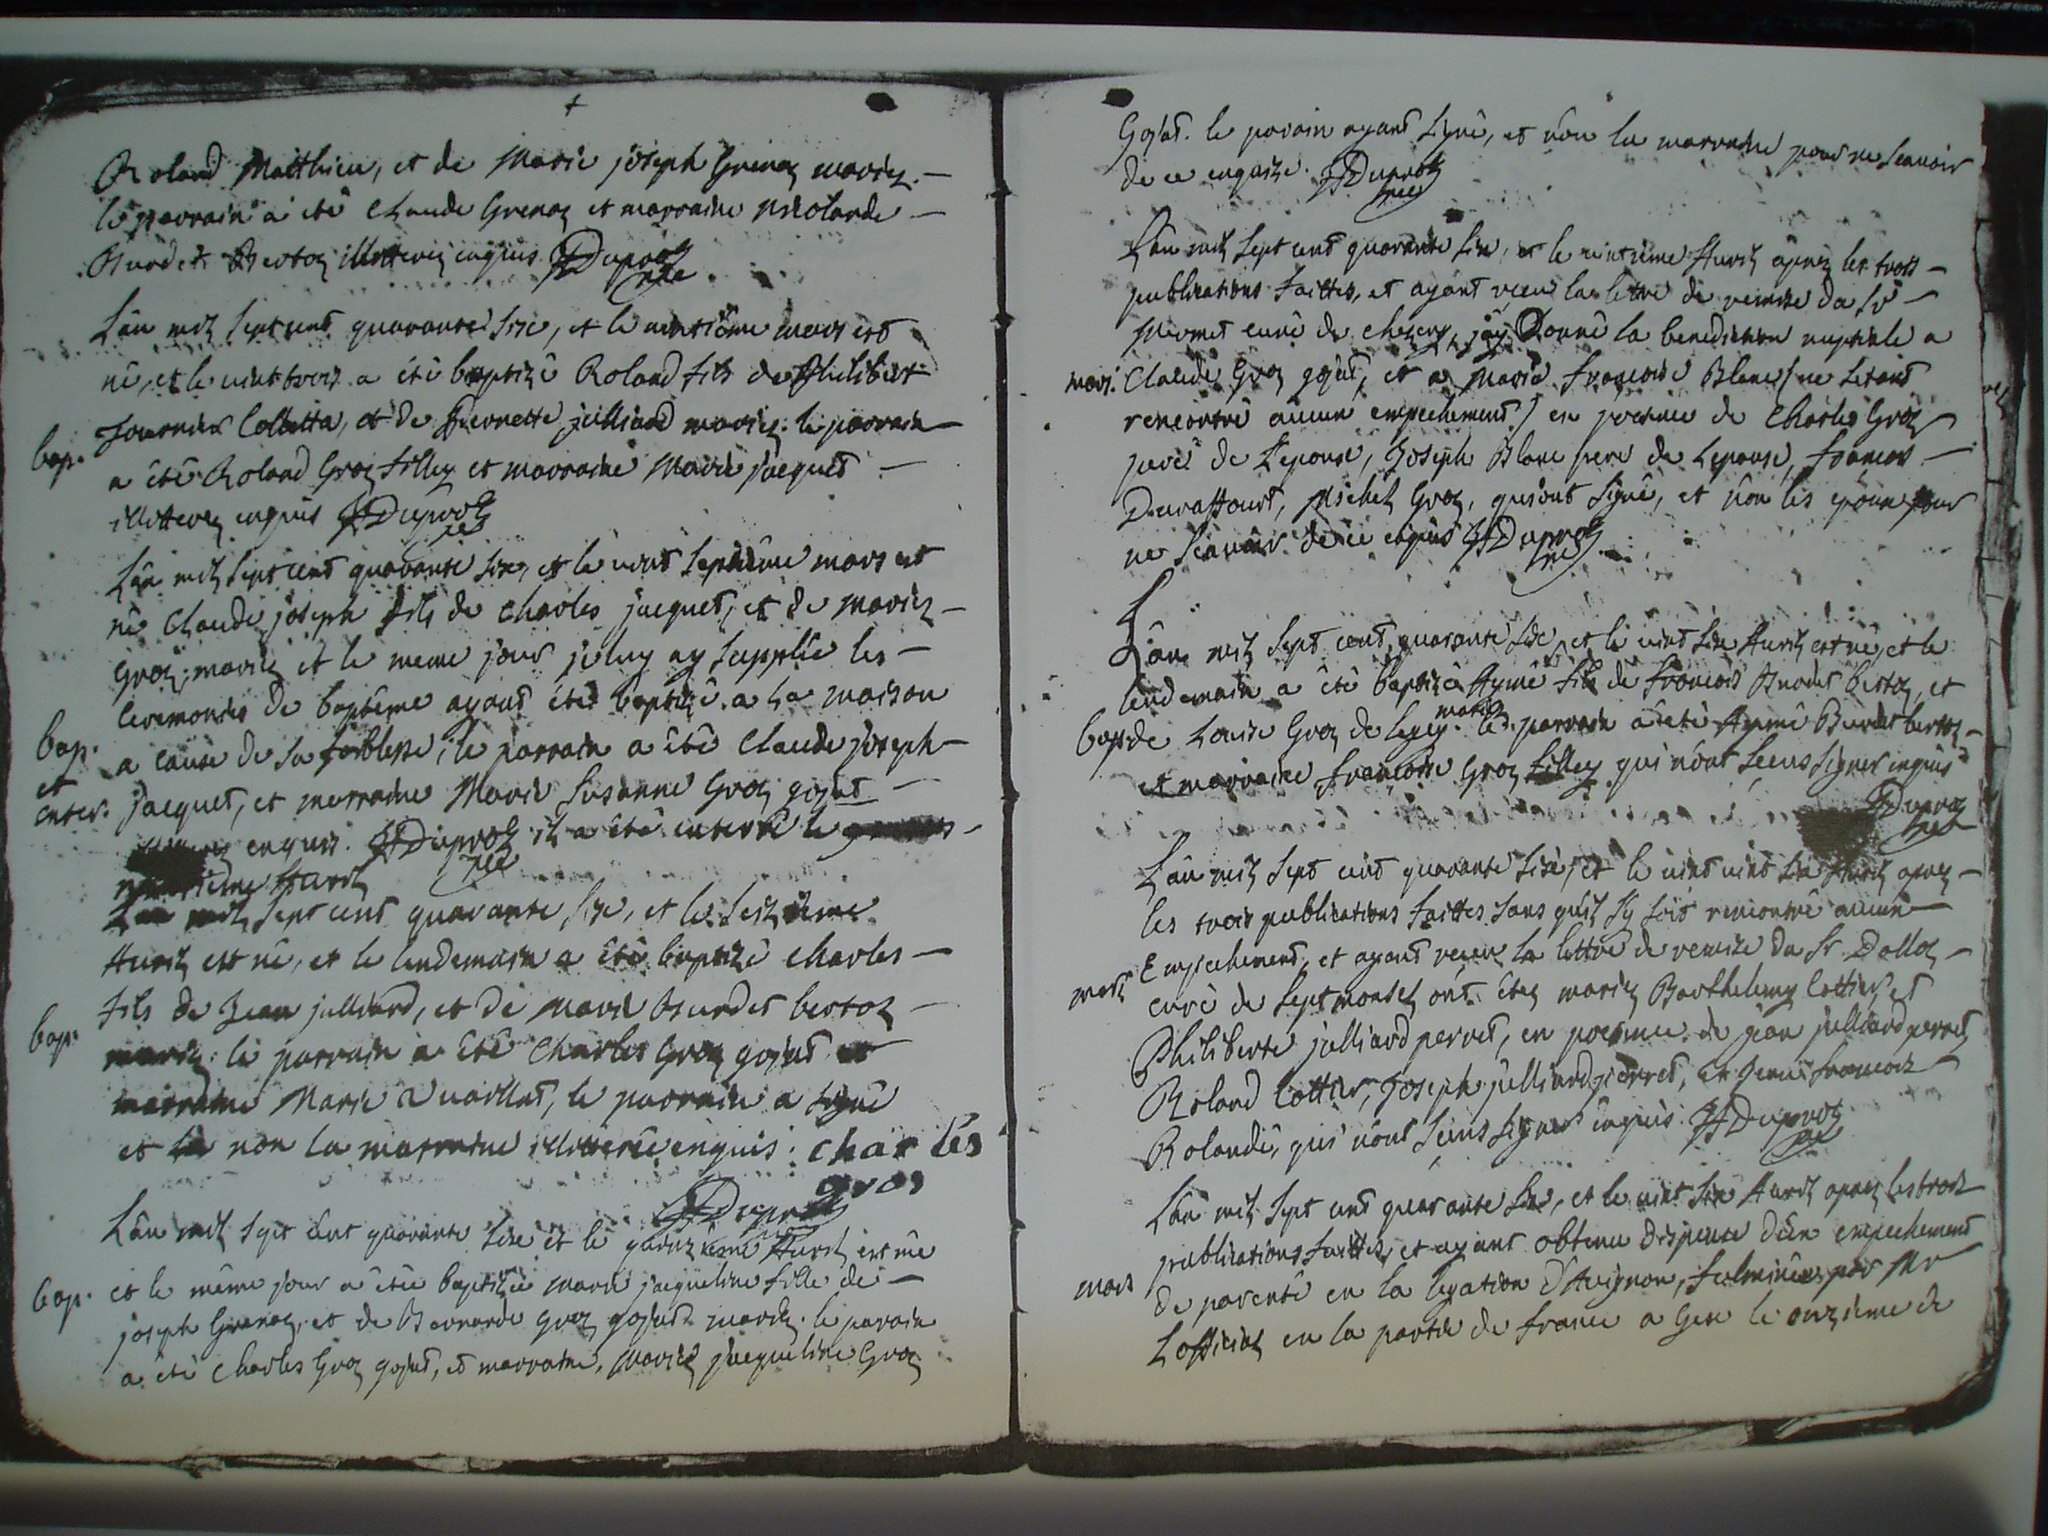 Roland Matthieu, et de Marie joseph Grenoz mariez. —
le parrain a été Claude Grenoz et marraine Nicolarde —
Burdet Bertoz illitterez enquis JJDuproz
L'an mil sept cent quarante sixe, et le vintiême mars est
né, et le vint trois a été baptizé Roland fils de Philibert
bap. Fournier Colletta, et de Pernette julliard mariez. le parrain
a été Roland Groz fillez et marraine Marie jacquet —
illitterez enquis JJDuproz
L'an mil sept cent quarante sixe, et le vint septiême mars est
né Claude joseph fils de Charles jacquet, et de mariez —
Groz; mariez et le meme jour je luy ay supplée les —
ceremonies de baptême ayant été baptizé a la maison
bap. a cause de sa foiblesse; le parrain a été Claude joseph —
et
enter. jacquet, et marraine Marie Susanne Groz gojat —
enquis. JJDuproz il a été enterré le
Avril
L'an mil sept cent quarante sixe, et le seizième
Avril est né, et le lendemain a été baptizé Charles —
fils de Jean julliard, et de Marie Burdet bertoz —
bap. mariez. le parrain a été Charles Groz gojat et
marraine Marie Vuaillat, le parrain a signé
et la non la marraine illitterée enquis: charles
gros
JJDuproz
L'an mil sept cent quarante sixe et le quinzième Avril est née
bap. et le même jour a étée baptizée Marie jacqueline fille de —
joseph Grenoz, et de Bernarde groz gojat mariez. le parain
a été Charles Groz gojat, et marraine, Mariez jacqueline Groz
Gojat. le parain ayant signé, et non la marraine pour ne scavoir
de ce enquize. JJDuproz
L'an mil sept cent quarante sixe, et le vintième Avril après les trois —
publications faittes, et ayant receu la lettre de remise du Sr —
Mermet curé de chezery, j'ay Donné la benediction nuptiale a
mari. Claude Groz gojat, et a Marie françoise Blanc (ne s'etant
rencontré aucun empechement) en presence de Charles Groz
pere de l'epoux, Joseph Blanc pere de l'epouse, françois —
Duraffourt, Michel Groz, qui ont signé, et non les epoux pour
ne scavoir de ce enquis JJDuproz
L'an mil sept cent quarante sixe et le vint sixe Avril est né, et le
lendemain a été baptizé Aymé fils de françois Burdet bertoz, et
bap. de Louise Groz de legex. mariez le parrain a été Aymé Burdet bertoz —
et marraine françoise Groz filley qui n'ont sceus signer enquis
JJDuproz
L'an mil sept cent quarante sixe, et le vint vint six Avril aprez —
les trois publications faittes sans qu'il s'y soit rencontré aucun
Empechement, et ayant receu la lettre de remise du Sr. Dolloz —
mari curé de Septmoncel ont étez mariez Barthelemy Cottier et
Philiberte julliard perret, en presence de jean julliard perret,
Roland Cottier, Joseph julliard pierret, et Jean françois
Rolandé, qui n'ont sceus signer enquis. JJDuproz
L'an mil sept cent quarante sixe, et le vint six Avril aprez les trois
publications faittes, et ayant obtenu dispense d'un empechement
mari de parenté en la legation d'Avignon, fulminée par Mr
L'official en la partie de france a Gex le onzieme de